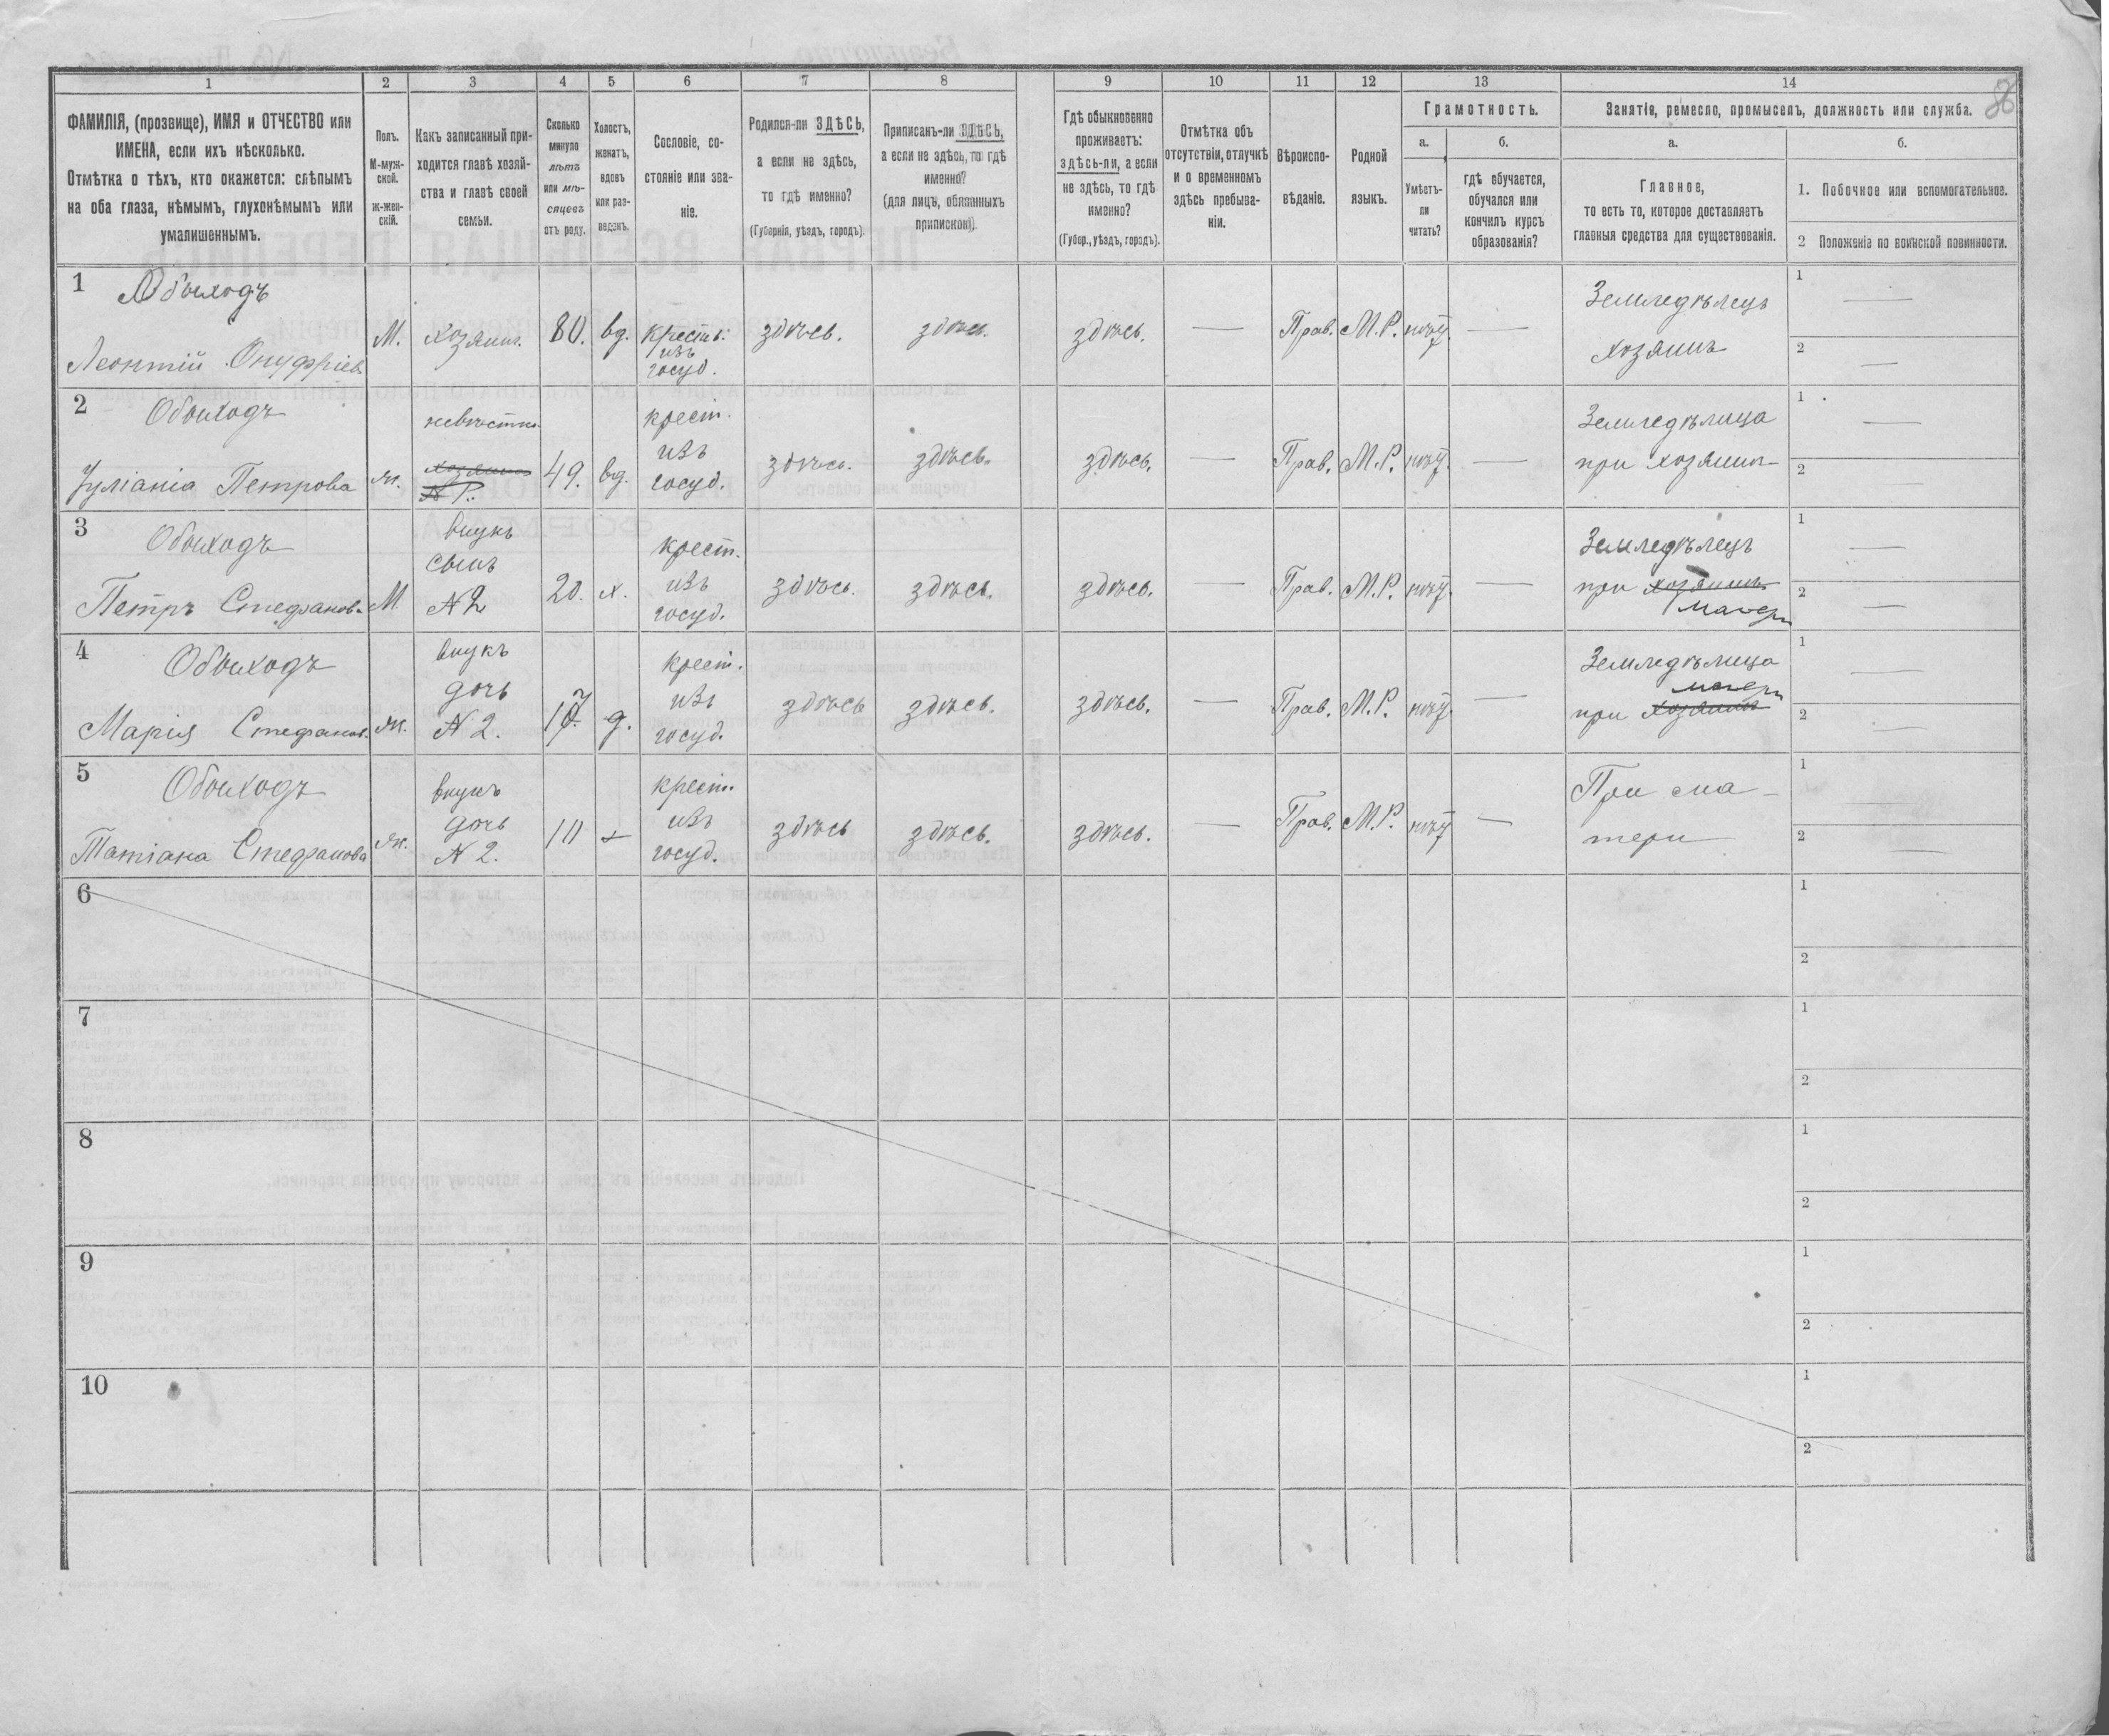 1 2 3 4 5 6 7 8 9 10 11 12 13 14
ФАМИЛІЯ, (прозвище), ИМЯ и ОТЧЕСТВО или
ИМЕНА, если ихъ нѣсколько.
Отмѣтка о тѣхъ, кто окажется: слѣпымъ
на оба глаза, нѣмымъ, глухонѣмымъ или
умалишеннымъ.
Полъ.
М-муж-
ской.
ж-жен-
скій.
Какъ записанный при-
ходится главѣ хозяй-
ства и главѣ своей
семьи.
Сколько
минуло
лѣтъ
или мѣ-
сяцевъ
отъ роду.
Холостъ,
женатъ,
вдовъ
или раз-
веденъ.
Сословіе, со-
стояніе или зва-
ніе.
Родился-ли ЗДѢСЬ,
а если не здѣсь,
то гдѣ именно?
(Губернія, уѣздъ, городъ).
Приписанъ-ли ЗДѢСЬ,
а если не здѣсь, то гдѣ
именно?
(для лицъ, обязанныхъ
припискою).
Гдѣ обыкновенно
проживаетъ:
здѣсь-ли, а если
не здѣсь, то гдѣ
именно?
(Губер., уѣздъ, городъ).
Отмѣтка объ
отсутствіи, отлучкѣ
и о временномъ
здѣсь пребыва-
ніи.
Вѣроиспо-
вѣданіе.
Родной
языкъ.
Грамотность.
а.
Умѣетъ-
ли
читать?
б.
гдѣ обучается,
обучался или
кончилъ курсъ
образованія?
Занятіе, ремесло, промыселъ, должность или служба.
а.
Главное,
то есть то, которое доставляетъ
главныя средства для существованія.
б.
1. Побочное или вспомогательное.
2 Положеніе по воинской повинности.
1 Обыходъ
Леонтій Онуфріев.
М. хозяинъ. 80. вд. Крестьи.
изъ
госуд.
здѣсь. здѣсь. здѣсь. — Прав. М.Р. —
Земледѣлецъ
хозяинъ
1 —
2 —
2 Обыходъ
Уліанія Петрова
ж. невѣстка
хозяина
N 1.
49. вд. крест.
изъ
госуд.
здѣсь. здѣсь. здѣсь. — Прав. М.Р. —
Земледѣлица
при хозяинѣ
1 —
2 —
3 Обыходъ
Петръ Стефанов.
М внукъ
сынъ
N 2
20. х. крест.
изъ
госуд.
здѣсь. здѣсь. здѣсь. — Прав. М.Р. —
Земледѣлецъ
при хозяинѣ
матери
1 —
2 —
4 Обыходъ
Марія Стефанов.
ж. внукъ
дочь
N 2.
17. д. крест.
изъ
госуд.
здѣсь здѣсь. здѣсь. — Прав. М.Р. —
Земледѣлица
матери
при хозяинѣ
1 —
2 —
5 Обыходъ
Татіана Стефанова
ж. внукъ
дочь
N 2.
крест.
изъ
госуд.
здѣсь здѣсь. здѣсь. — Прав. М.Р. —
При ма-
тери
1 —
2 —
6 1
2
7 1
2
8 1
2
9 1
2
10 1
2